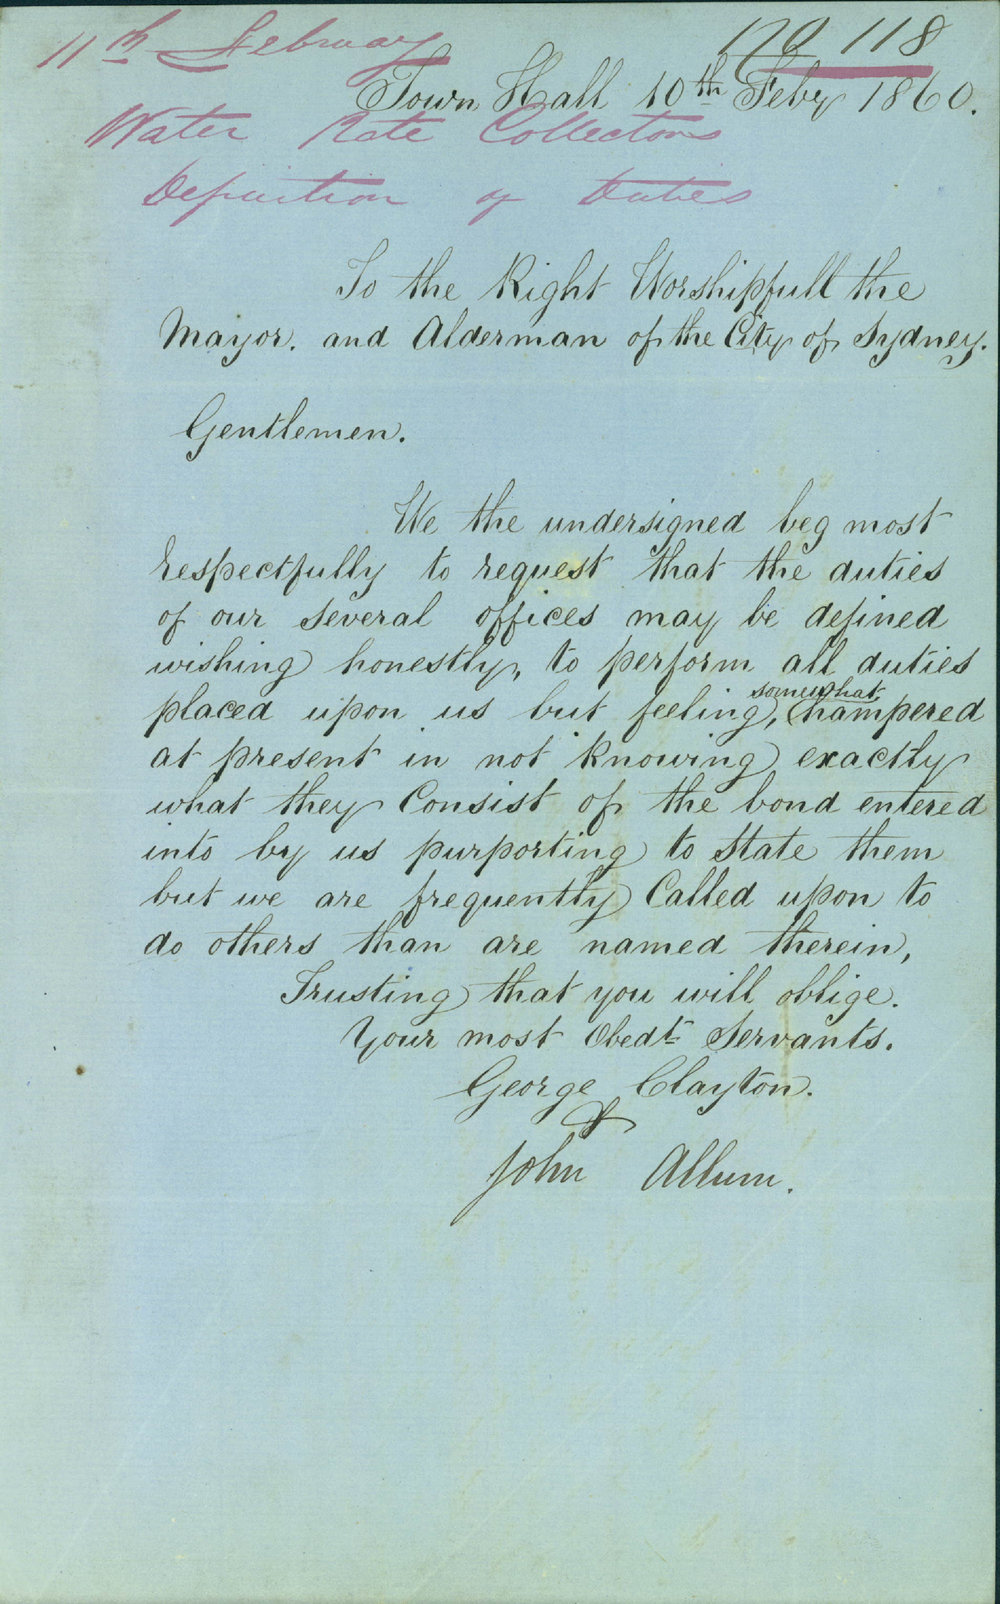 11th February
No 118
Town Hall 10th Feby 1860.
Water Rate Collectors
Definition of Duties
To the Right Worshipfull the
Mayor. and Alderman of the City of Sydney.
Gentlemen.
We the undersigned beg most
respectfully to request that the duties
of our several offices may be defined
wishing honestly, to perform all duties
somewhat
placed upon us but feeling, hampered
at present in not knowing exactly
what they Consist of the bond entered
into by us purporting to State them
but we are frequently Called upon to
do others than are named therein,
Trusting that you will oblige.
Your most Obedt Servants.
George Clayton.
&
John Allum.